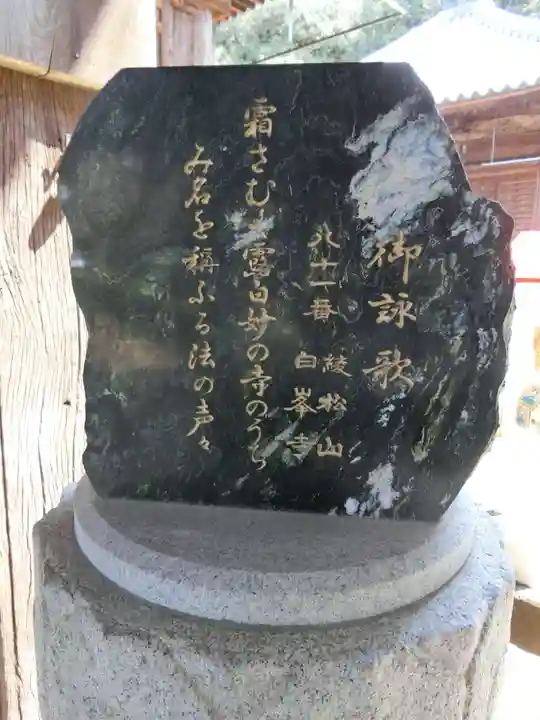 御詠歌
八十一番 綾松山
白峯寺
霜さむく露白妙の寺のうち
み名を称ふる法の声々